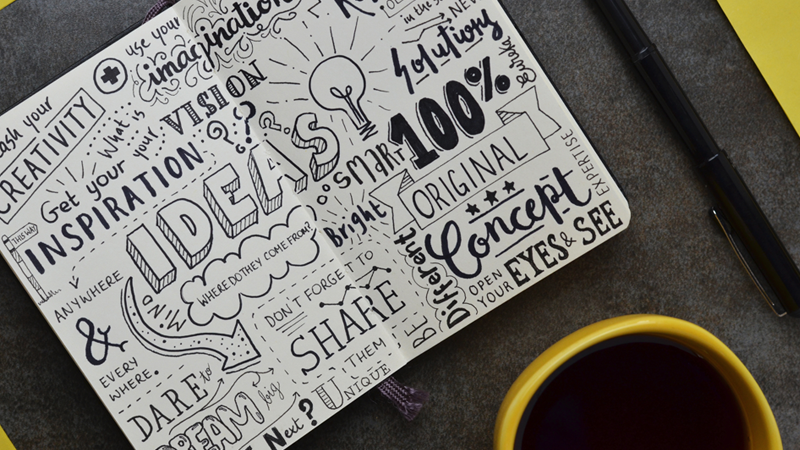 use your
imagination
CREATIVITY
your
What is
your VISION
??
Get your
INSPIRATION
THIS WAY
IDEAS
WHERE DO THEY COME FROM?
ANYWHERE
&
EVERY
WHERE.
MIND
DON'T FORGET TO
SHARE
THEM
DARE to
DREAM big
Next?
UNIQUE
in the
NEW
Solutions
100%
Smart
ORIGINAL
Bright
Concept
EXPERTISE
Different
BE
OPEN
YOUR EYES & SEE